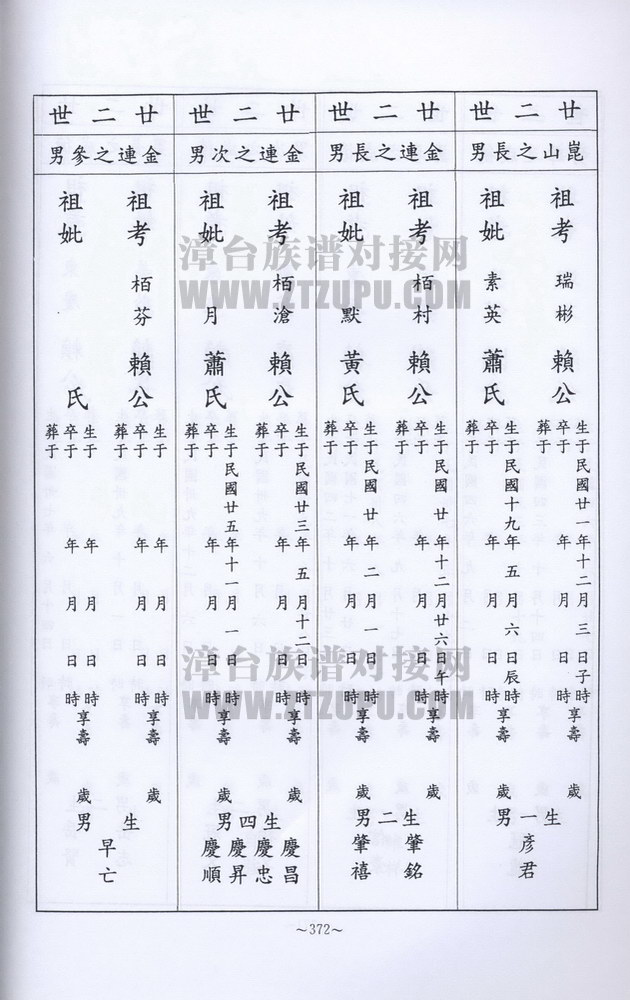 廿二世
崑山之長男
祖考 瑞彬 賴公
生于民國廿一年十二月三日子時享壽歲
卒于年月日時
葬于
祖妣 素英 蕭氏
生于民國十九年五月六日辰時享壽歲
卒于年月日時
葬于
生一男
彥君
廿二世
金連之長男
祖考 栢村 賴公
生于民國廿年十二月廿六日午時享壽歲
卒于年月日時
葬于
祖妣 默 黃氏
生于民國廿年二月一日時享壽歲
卒于年月日時
葬于
生二男
肇銘
肇禧
廿二世
金連之次男
祖考 栢滄 賴公
生于民國廿三年五月十二日時享壽歲
卒于年月日時
葬于
祖妣 月 蕭氏
生于民國廿五年十一月一日時享壽歲
卒于年月日時
葬于
生四男
慶昌
慶忠
慶昇
慶順
廿二世
金連之參男
祖考 栢芬 賴公
生于年月日時享壽歲
卒于年月日
葬于
祖妣 氏
生于年月日時享壽歲
卒于年月日
葬于
生男
早亡
~372~
漳台族谱对接网
WWW.ZTZUPU.COM
漳台族谱对接网
WWW.ZTZUPU.COM